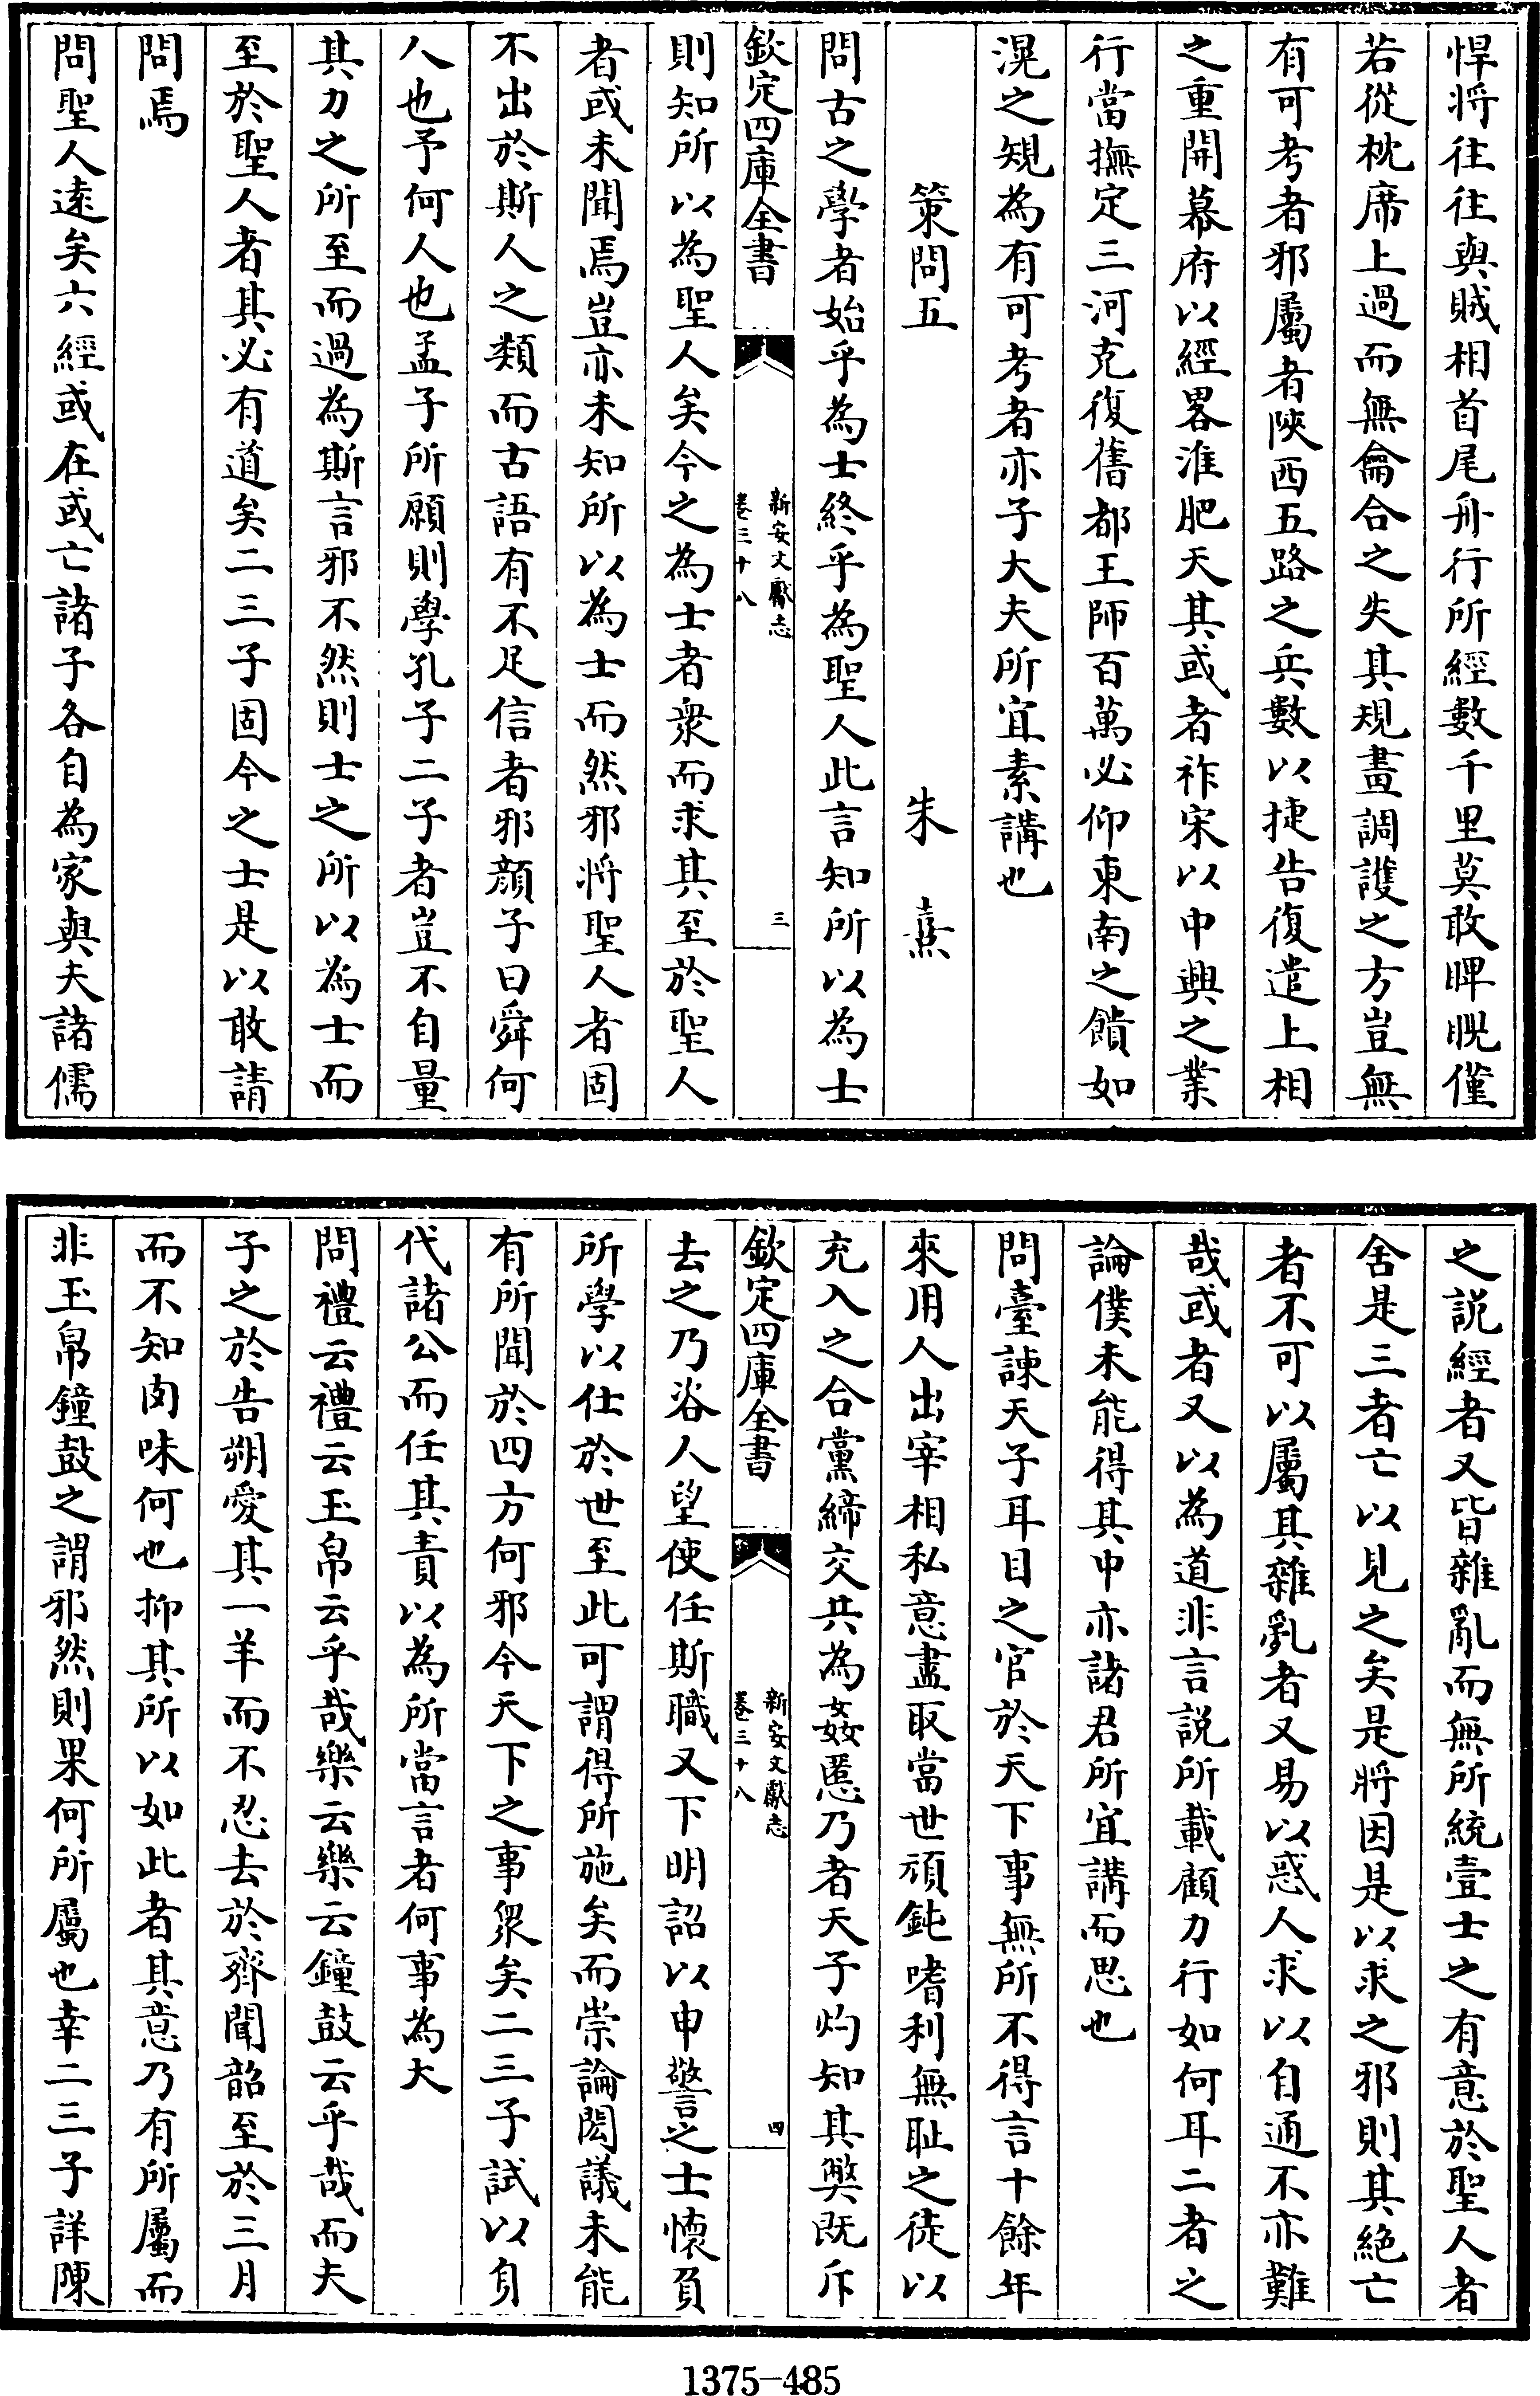 悍将往往與賊相首尾舟行所經數千里莫敢睥睨僅
若從枕席上過而無龠合之失其規畫調護之方豈無
有可考者邪屬者陜西五路之兵數以捷告復遣上相
之重開幕府以經畧淮肥天其或者祚宋以中興之業
行當撫定三河克復舊都王師百萬必仰東南之饋如
滉之規為有可考者亦子大夫所宜素講也
策問五 朱熹
問古之學者始乎為士終乎為聖人此言知所以為士
欽定四庫全書 新安文獻志 卷三十八 三
則知所以為聖人矣今之為士者衆而求其至於聖人
者或未聞焉豈亦未知所以為士而然邪將聖人者固
不出於斯人之類而古語有不足信者邪顔子曰舜何
人也予何人也孟子所願則學孔子二子者豈不自量
其力之所至而過為斯言邪不然則士之所以為士而
至於聖人者其必有道矣二三子固今之士是以敢請
問焉
問聖人遠矣六經或在或亡諸子各自為家與夫諸儒
之説經者又皆雜亂而無所統壹士之有意於聖人者
舍是三者亡以見之矣是將因是以求之邪則其絶亡
者不可以屬其雜亂者又易以惑人求以自通不亦難
哉或者又以為道非言説所載顧力行如何耳二者之
論僕未能得其中亦諸君所宜講而思也
問臺諫天子耳目之官於天下事無所不得言十餘年
來用人出宰相私意盡取當世頑鈍嗜利無耻之徒以
充入之合黨締交共為姦慝乃者天子灼知其弊既斥
欽定四庫全書 新安文獻志 卷三十八 四
去之乃咨人望使任斯職又下明詔以申警之士懷負
所學以仕於世至此可謂得所施矣而崇論閎議未能
有所聞於四方何邪今天下之事衆矣二三子試以身
代諸公而任其責以為所當言者何事為大
問禮云禮云玉帛云乎哉樂云樂云鐘鼓云乎哉而夫
子之於告朔愛其一羊而不忍去於齊聞韶至於三月
而不知肉味何也抑其所以如此者其意乃有所屬而
非玉帛鐘鼓之謂邪然則果何所屬也幸二三子詳陳
1375-485